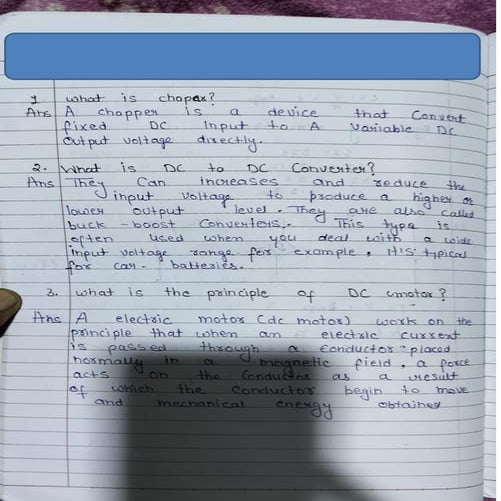 1 what is chopper?
Ans A chopper is a device that Convert
fixed DC Input to A variable DC
Output voltage directly.
2. What is DC to DC Converter?
Ans They Can increases and reduce the
input voltage to produce a higher or
lower output level. They are also called
buck-boost Converters. This type is
often used when you deal with a wide
input voltage range for example, It's typical
for car-batteries.
3. what is the principle of DC motor?
Ans A electric motor (dc motor) work on the
principle that when an electric current
is passed through a conductor placed
normally in a magnetic field, a force
acts on the conductor as a result
of which the conductor begin to move
and mechanical energy obtained